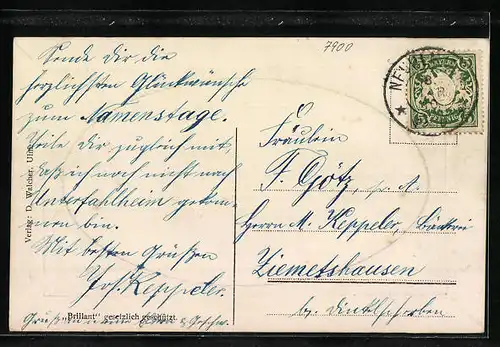 7900
Sende dir die
herzlichsten Glückwünsche
zum Namenstage.
Teile Dir zugleich mit,
daß ich noch nicht nach
Unterfahlheim gekom-
men bin.
Mit besten Grüßen
Jos. Keppeler.
Verlag: D. Walcher, Ulm
„Brillant" gesetzlich geschützt.
NEU-ULM
BAYERN
5
PFENNIG
Fräulein
F. Götz, p. A.
Herrn M. Keppeler,
Ziemetshausen
b. Dinkelscherben